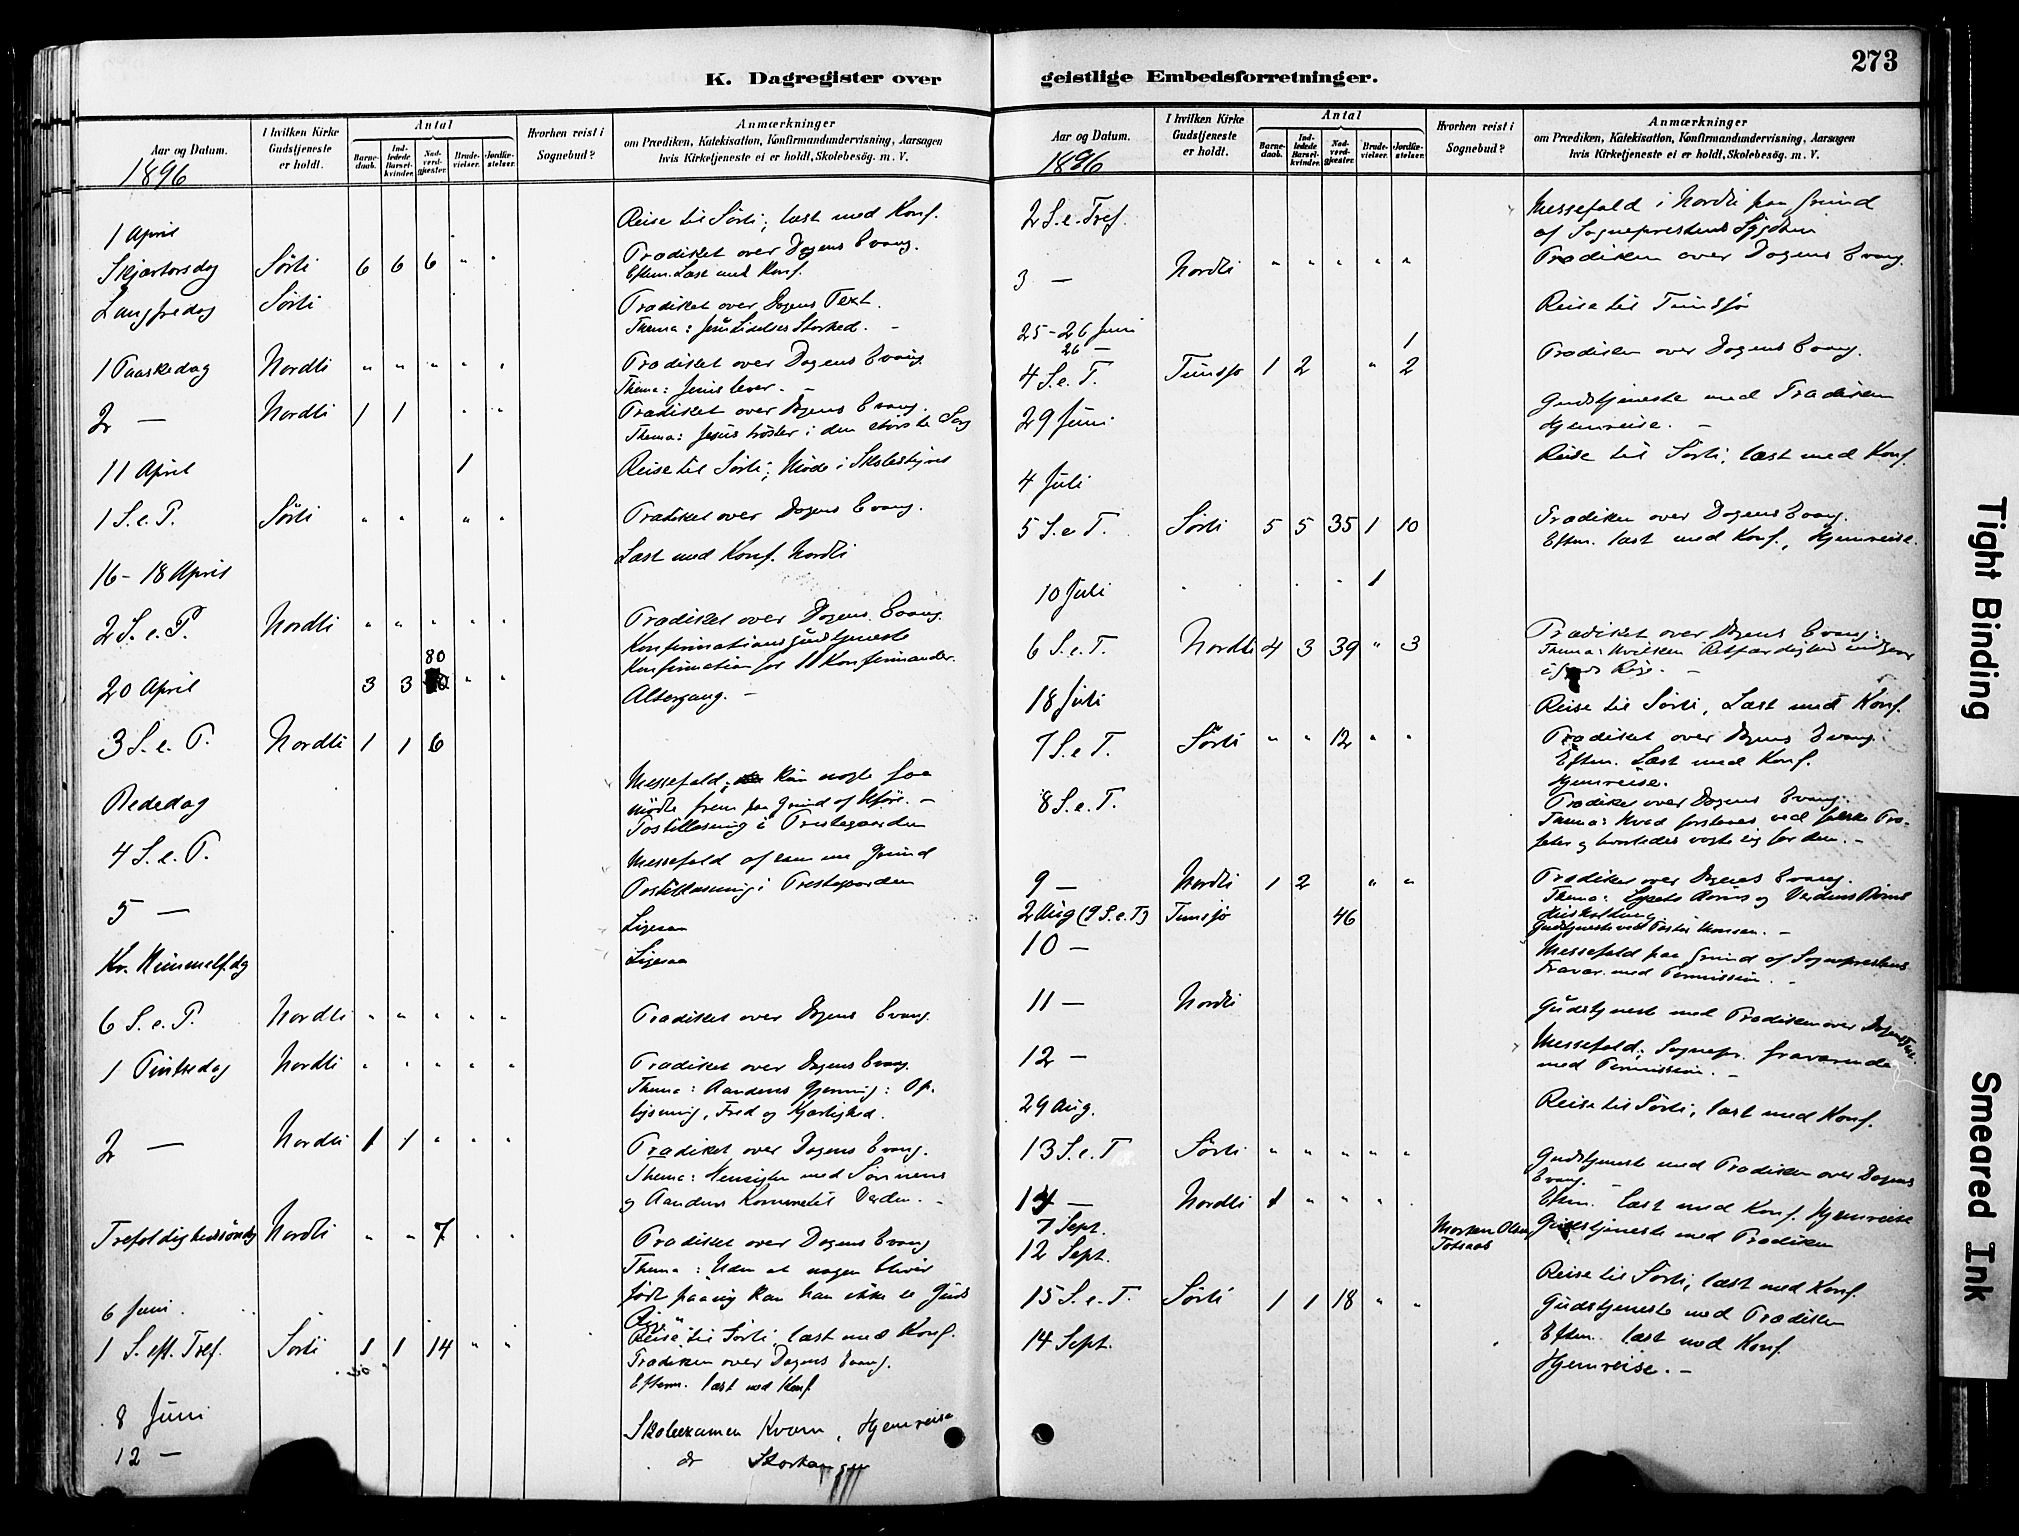 K. Dagregister over
Aar og Datum.
I hvilken Kirke Gudstjeneste er holdt.
Antal
Barnedaab.
Indledede Barselkvinder.
Nadverdgjester.
Brudevielser.
Jordfæstelser.
Hvorhen reist i Sognebud?
Anmærkninger
om Prædiken, Katekisation, Konfirmandundervisning, Aarsagen
hvis Kirketjeneste ei er holdt, Skolebesøg. m. V.
1896
1 April Reise til Sørli, læst med Konf.
Skjærtorsdag Sørli 6 6 6 " " Prædiket over Dagens Evang.
Eftm. Læst med Konf.
Langfredag Sørli Prædiket over Dagens Text.
Thema: Jesu Lidelses Storhed. –
1 Paaskedag Nordli " " " " " Prædiket over Dagens Evang.
Thema: Jesus lever. –
2 — Nordli 1 1 " " Prædiket over Dagens Evang.
Thema: Jesus trøster i den største Sorg
11 April 1 Reise til Sørli; Møde i Skolestyret
1 S. e. P. Sørli " " " " Prædiket over Dagens Evang.
16 – 18 April Læst med Konf. Nordli
2 S. e. P. Nordli " " " " " Prædiket over Dagens Evang.
Konfirmationsgudstjeneste
20 April 3 3 80 " " Konfirmation for 11 Konfirmander.
Altergang. –
3 S. e. P. Nordli 1 1 6
Bededag Messefald; kun nogle faa
mødte frem paa Grund af Uføre. –
Postillæsning i Prestegaarden
4 S. e. P. Messefald af samme Grund
Postillæsning i Prestegaarden
5 — Ligesaa
Kr. Himmelf.dg Ligesaa
6 S. e. P. Nordli " " " " " Prædiket over Dagens Evang.
1 Pintsedag Nordli " " " " " Prædiket over Dagens Evang.
Thema: Aandens Gjerning: Op-
lysning, Fred og Kjærlighed.
2 — Nordli 1 1 " " " Prædiket over Dagens Evang.
Thema: Hensigten med Sønnens
og Aandens Komme til Verden. –
Trefoldighedssøndg Nordli " " 7 " " Prædiket over Dagens Evang
Thema: Uden at nogen bliver
født paany kan han ikke se Guds
Rige
6 Juni. Reise til Sørli, læst med Konf.
1 S. eft. Tref. Sørli 1 1 14 " " Prædiken over Dagens Evang.
Efterm. læst med Konf
8 Juni Skoleexamen Kvam, Hjemreise
12 — do
geistlige Embedsforretninger.
273
Aar og Datum.
I hvilken Kirke Gudstjeneste er holdt.
Antal
Barnedaab.
Indledede Barselkvinder.
Nadverdgjester.
Brudevielser.
Jordfæstelser.
Hvorhen reist i Sognebud?
Anmærkninger
om Prædiken, Katekisation, Konfirmandundervisning, Aarsagen
hvis Kirketjeneste ei er holdt, Skolebesøg. m. V.
1896
2 S. e. Tref. Messefald i Nordli paa Grund
af Sogneprestens Sygdom
3 — Nordli " " " " " Prædiken over Dagens Evang.
25 – 26 Juni Reise til Tunsjø
26 — 1
4 S. e. T. Tunsjø 1 2 " 2 Prædiken over Dagens Evang.
29 Juni Gudstjeneste med Prædiken
Hjemreise. –
4 Juli Reise til Sørli, læst med Konf.
5 S. e T. Sørli 5 5 35 1 10 Prædiken over Dagens Evang.
Eftm. læst med Konf., Hjemreise.
10 Juli " " " " 1
6 S. e T. Nordli 4 3 39 " 3 Prædiket over Dagens Evang:
Thema: Hvilken Retfærdighed indgaar
i Guds Rige. –
18 Juli Reise til Sørli, Læst med Konf.
7 S. e T. Sørli " " 12 " " Prædiket over Dagens Evang
Eftm. Læst med Konf.
Hjemreise.
8 S. e T. Prædiket over Dagens Evang.
Thema: Hvad forstaaes ved falske Pro-
feter og hvorledes vogte sig for dem. –
9 — Nordli 1 2 " " Prædiket over Dagens Evang.
Thema: Lysets Børns og Verdens Børns
2 Aug (9 S. e. T) Tunsjø 46 Gudstjeneste ved Pastor –
10 — Messefald paa Grund af Sogneprestens
Fravær med Permission. –
11 — Nordli Gudstjeneste med Prædiken over Dagens Text.
12 — Messefald; Sognepr. fraværende
med Permission. –
29 Aug. Reise til Sørli, læst med Konf.
13 S. e. T Sørli " " " " " Gudstjeneste med Prædiken over Dagens
Evang.
Eftm. læst med Konf. Hjemreise
14 — Nordli 1 " " " " Gudstjeneste med Prædiken
7 Sept. Morten Olsen
Totsaas
12 Sept. Reise til Sørli, læst med Konf.
15 S. e. T. Sørli 1 1 18 " " Gudstjeneste med Prædiken
Eftm. læst med Konf.
14 Sept. Hjemreise. –
Tight Binding
Smeared Ink